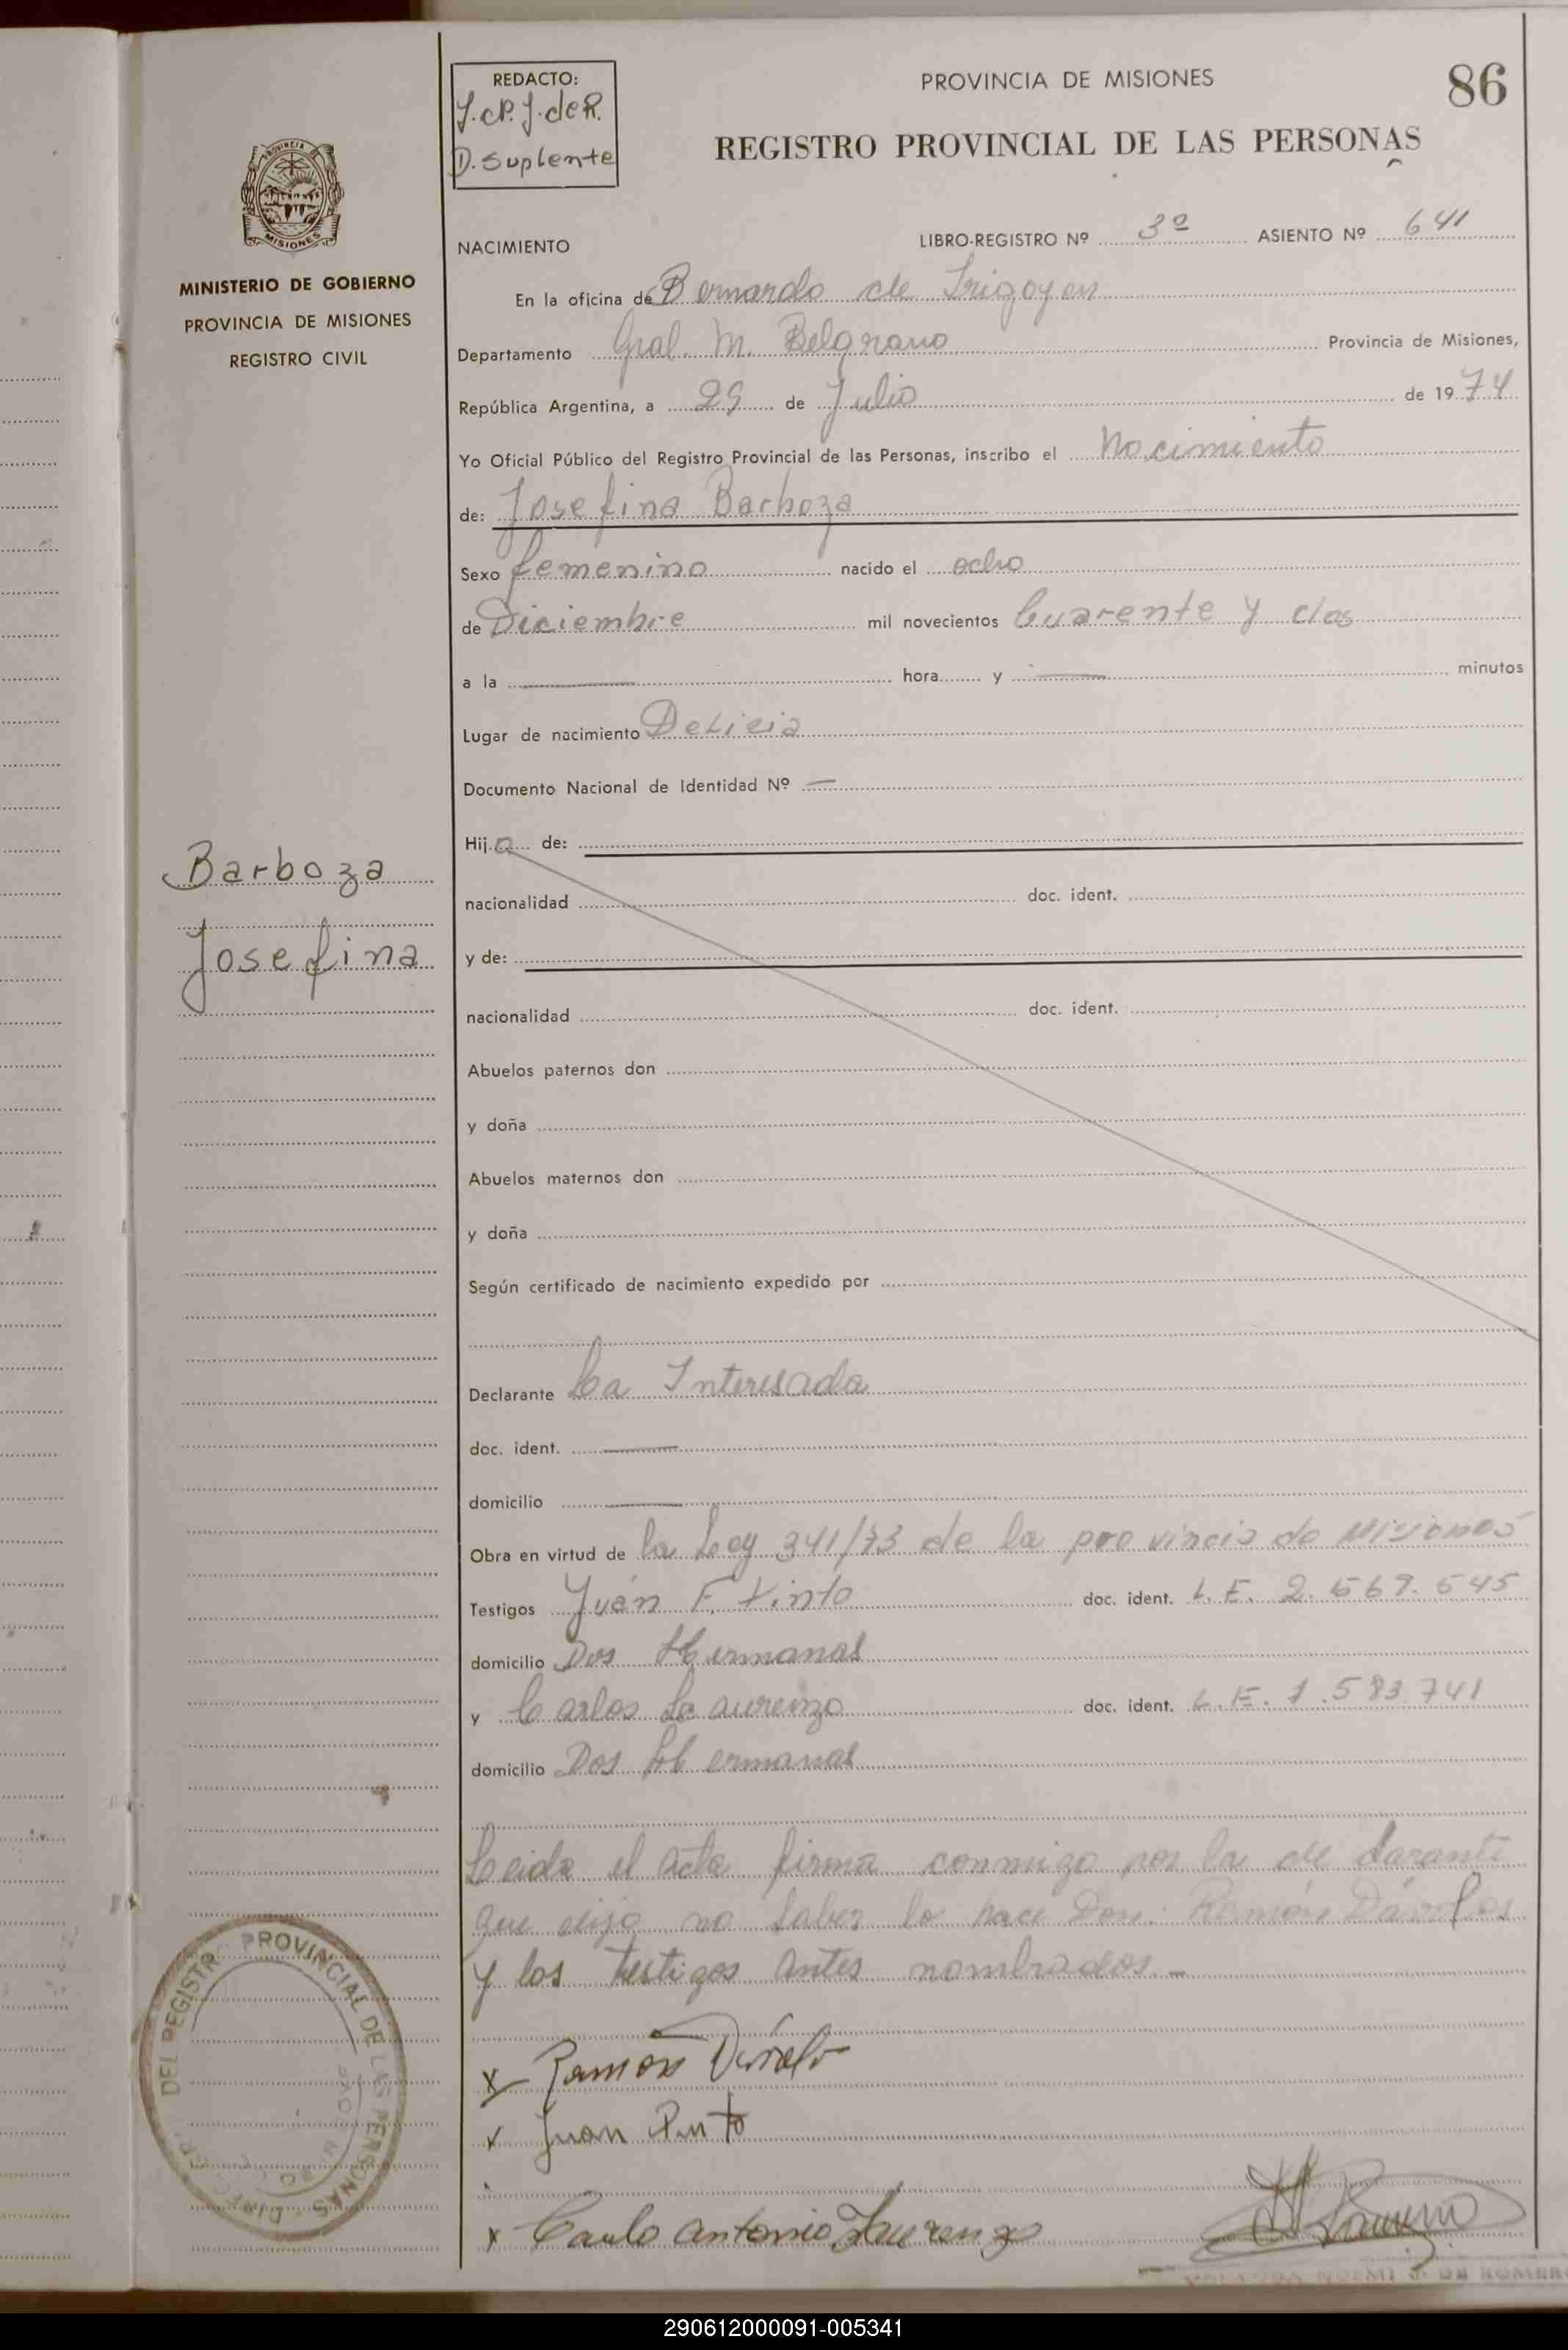 REDACTO:
D. Suplente
PROVINCIA DE MISIONES
86
REGISTRO PROVINCIAL DE LAS PERSONAS
PROVINCIA DE
MISIONES
MINISTERIO DE GOBIERNO
PROVINCIA DE MISIONES
REGISTRO CIVIL
NACIMIENTO
LIBRO-REGISTRO Nº 3º ASIENTO Nº 641
En la oficina de Bernardo de Irigoyen
Departamento Gral. M. Belgrano Provincia de Misiones,
República Argentina, a 29 de Julio de 1974
Yo Oficial Público del Registro Provincial de las Personas, inscribo el Nacimiento
de: Josefina Barboza
Sexo femenino nacido el ocho
de Diciembre mil novecientos Cuarente y dos
a la — hora y — minutos
Lugar de nacimiento Delicia
Documento Nacional de Identidad Nº —
Barboza
Josefina
Hija de:
nacionalidad doc. ident.
y de:
nacionalidad doc. ident.
Abuelos paternos don
y doña
Abuelos maternos don
y doña
Según certificado de nacimiento expedido por
Declarante La Interesada
doc. ident. —
domicilio —
Obra en virtud de la Ley 341/73 de la provincia de Misiones
Testigos Juan F. Pinto doc. ident. L.E. 2.569.545
domicilio Dos Hermanas
y Carlos Laurenzo doc. ident. L.E. 1.583.741
domicilio Dos Hermanas
Leida el acta firma conmigo por la declarante
que dijo no saber lo hace Don: Ramón Dávalos
y los testigos antes nombrados.-
DEL REGISTRO PROVINCIAL DE LAS PERSONAS
x Ramon Dávalo
x Juan Pinto
x Carlo Antonio Laurenzo
290612000091-005341